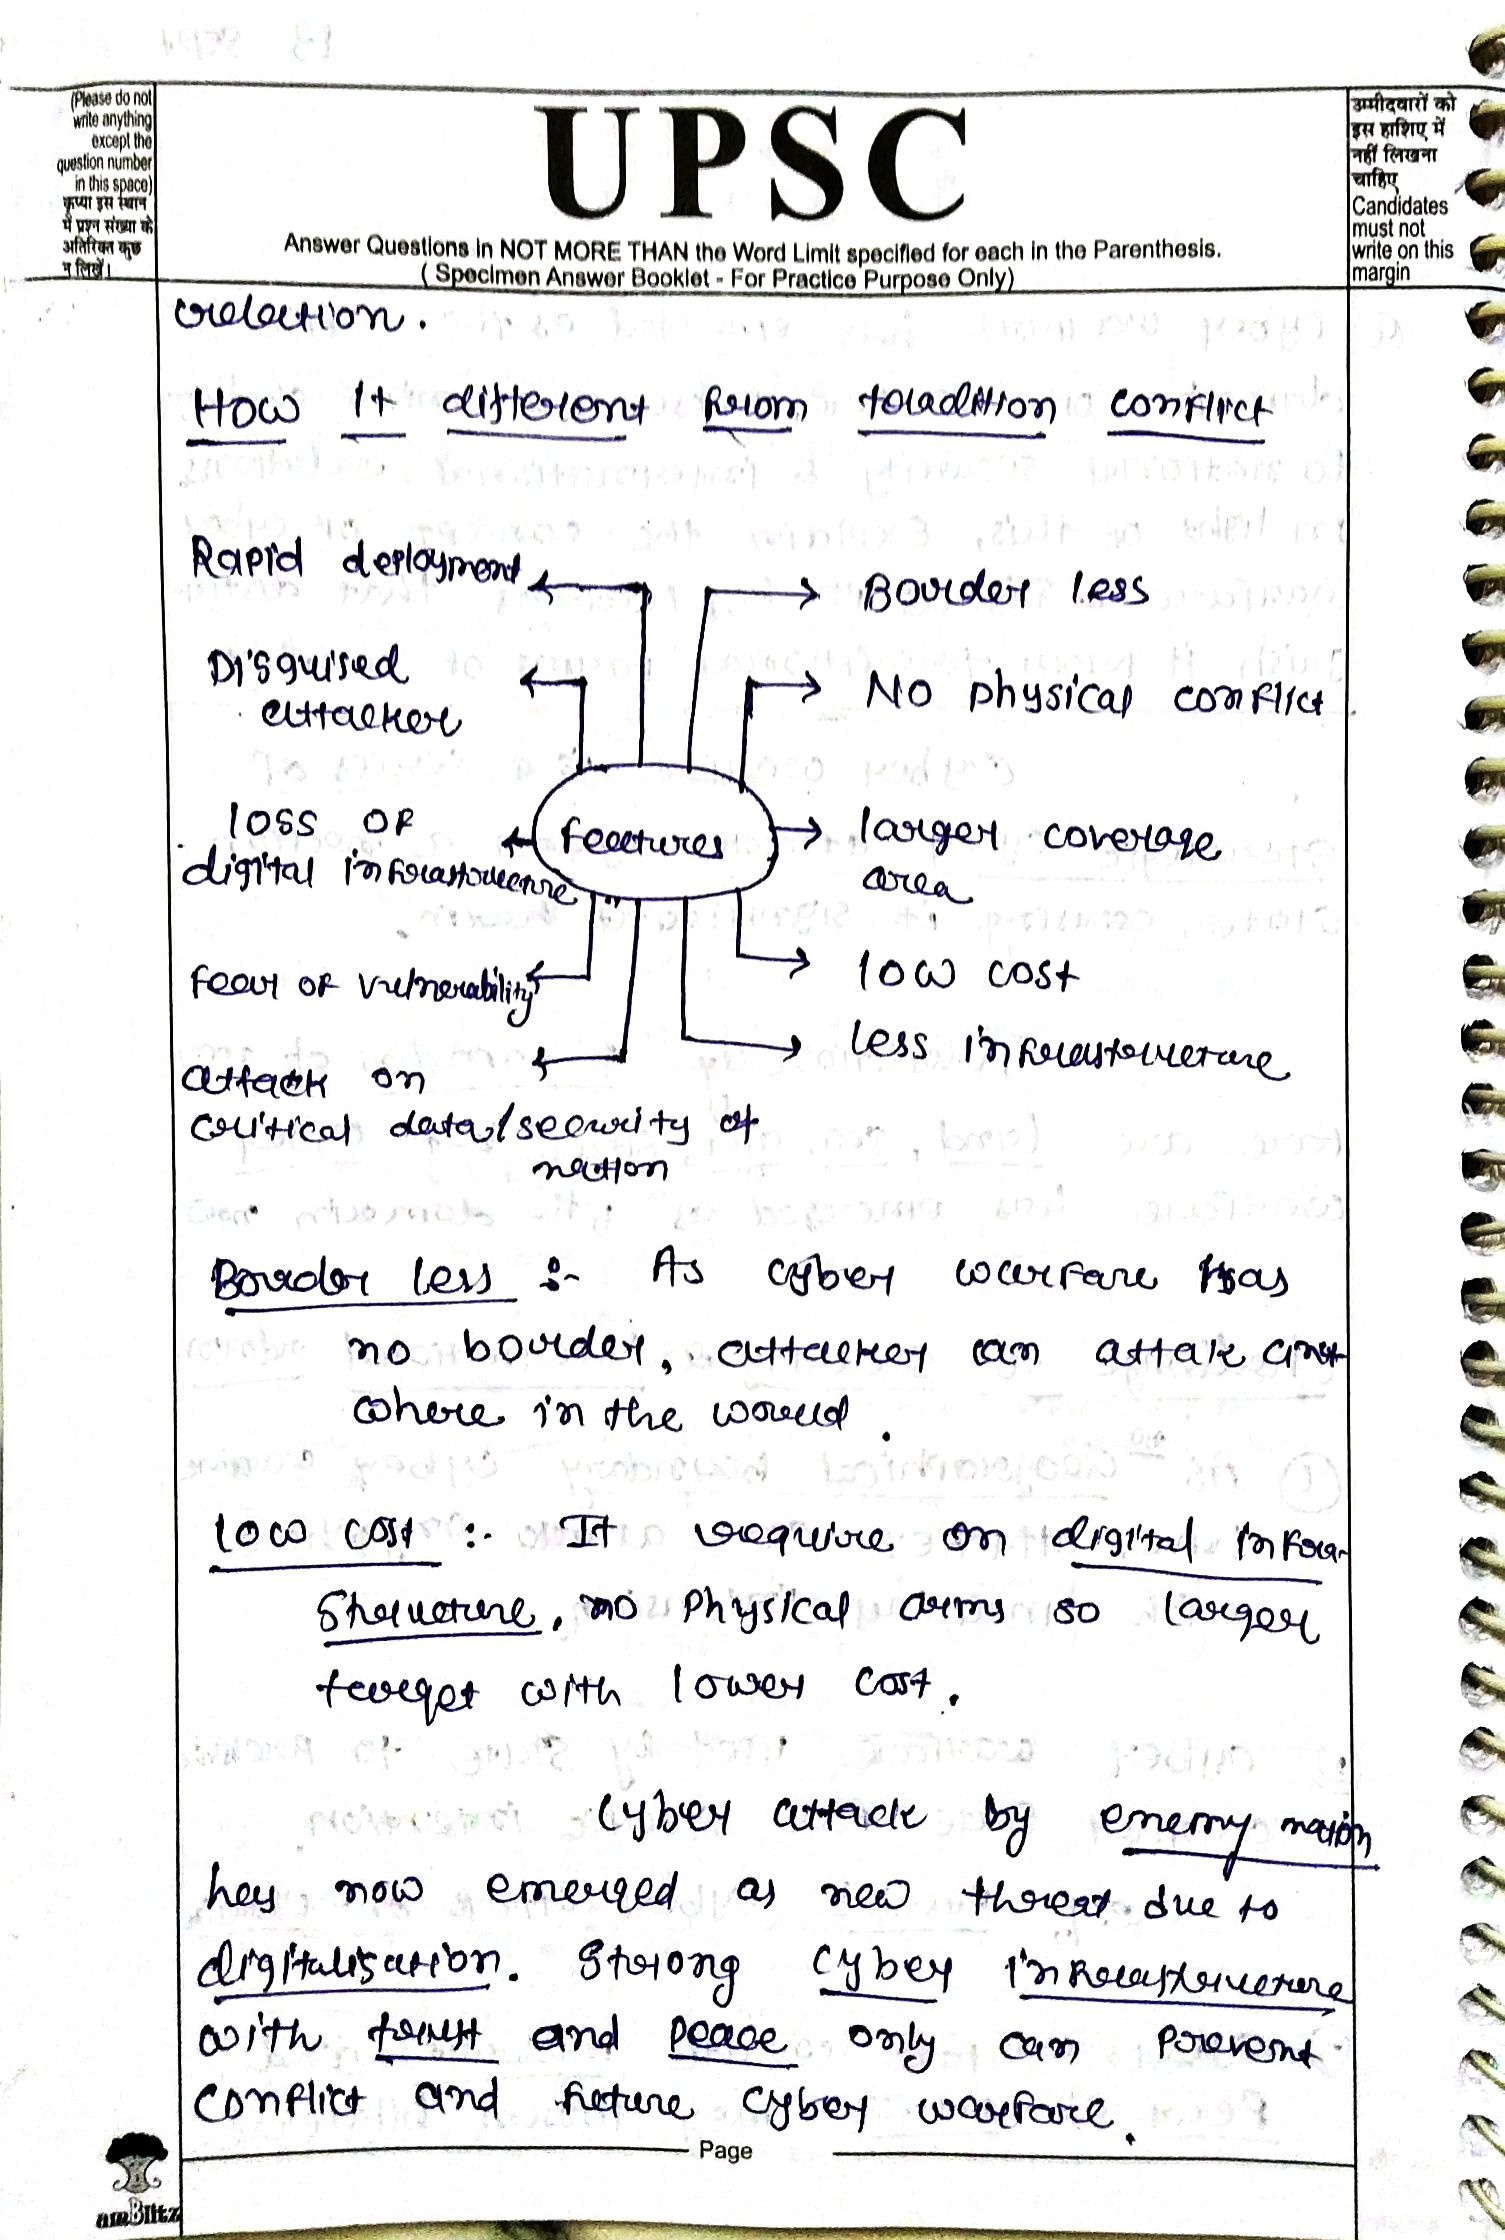 (Please do not
write anything
except the
question number
in this space)
कृप्या इस स्थान
में प्रश्न संख्या के
अतिरिक्त कुछ
न लिखें।
UPSC
Answer Questions in NOT MORE THAN the Word Limit specified for each in the Parenthesis.
( Specimen Answer Booklet - For Practice Purpose Only)
उम्मीदवारों को
इस हाशिए में
नहीं लिखना
चाहिए
Candidates
must not
write on this
margin
relation.
How It different from tradition conflict
Rapid deployment
Border less
Disguised
attacker
No physical conflict
loss of
digital infrastructure
features
larger coverage
area
fear of vulnerability
low cost
less infrastructure
attack on
critical data/security of
nation
Border less :- As cyber warfare has
no border, attacker can attak any
where in the world.
low cost :- It require on digital infra-
structure, no physical arms so larger
target with lower cost.
cyber attack by enemy nation
has now emerged as new threat due to
digitalisation. Strong cyber infrastructure
with trust and peace only can prevent
conflict and future cyber warfare.
Page
amBlitz